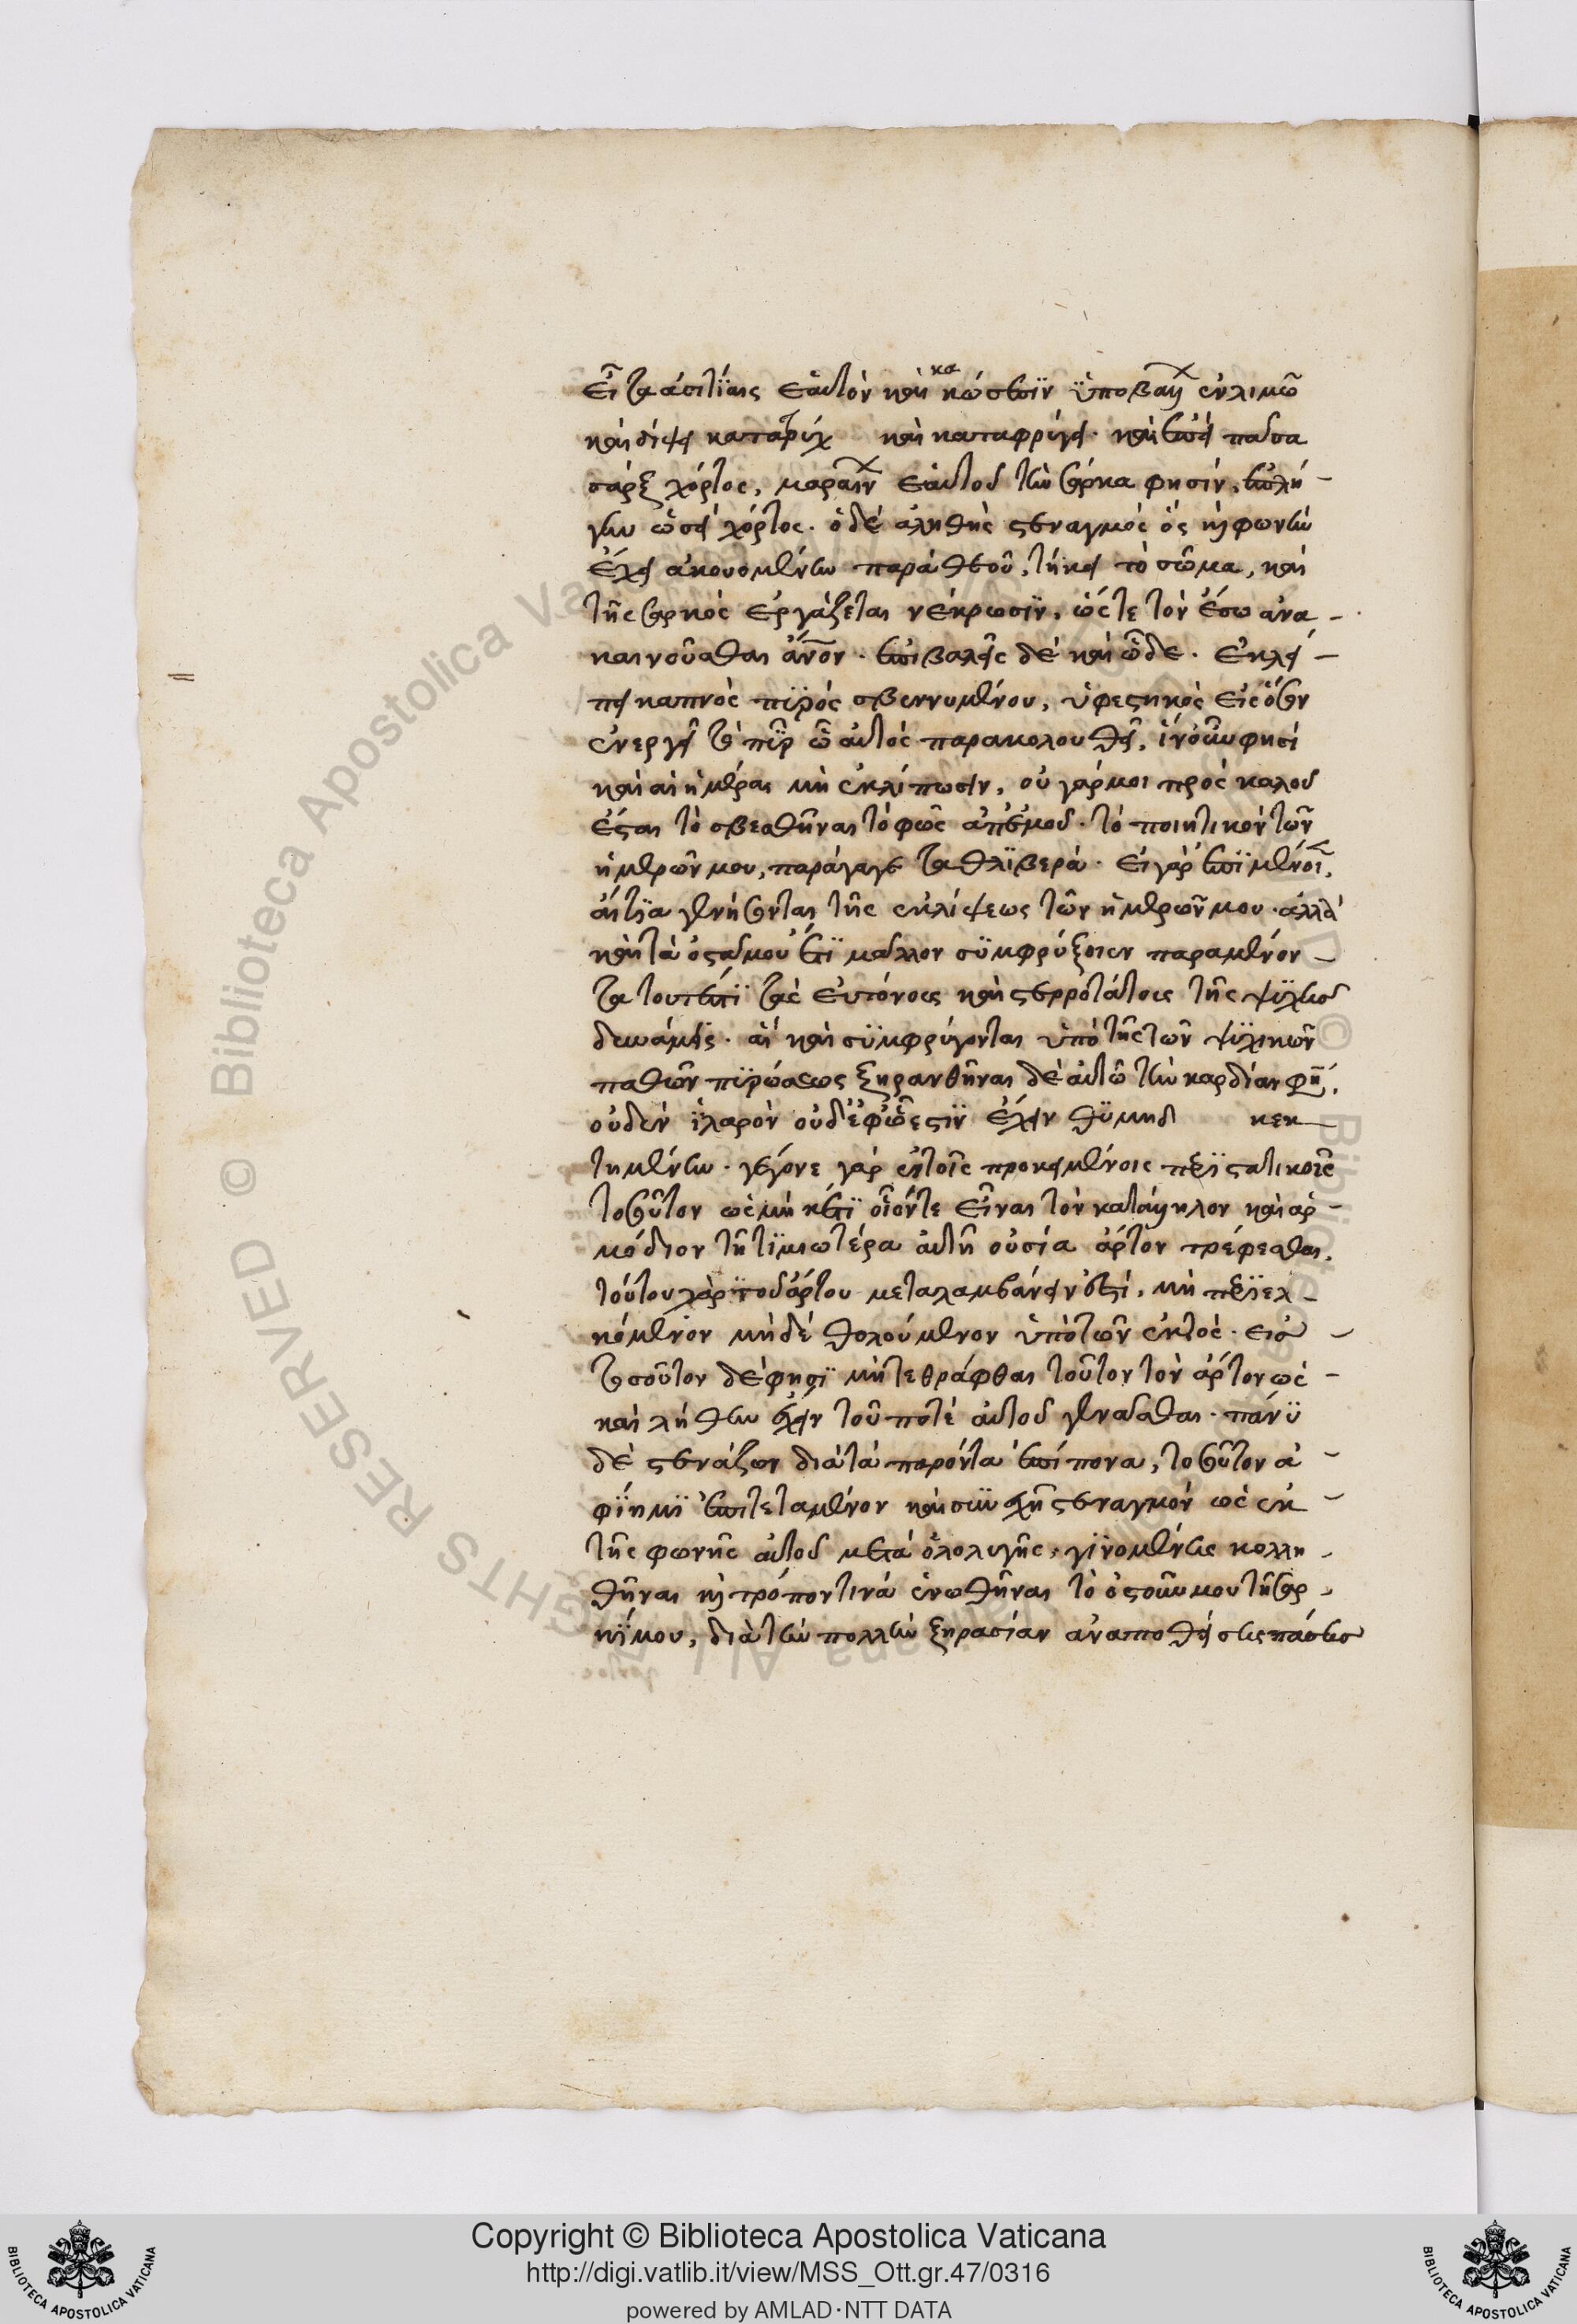 εἶτα ἀσιτίαις ἑαυτὸν καὶ κακώσεσιν ὑποβαλὼν ἐν λιμῷ
καὶ δίψει κατατρύχ καὶ καταφρύγει· καὶ ἐπεὶ πᾶσα
σὰρξ χόρτος, μαραίνων ἑαυτοῦ τὴν σάρκα φησίν, ἐπλή
γην ὡσεὶ χόρτος· ὁ δὲ ἀληθὴς στεναγμὸς ὃς καὶ φωνὴν
ἔχει ἀκουομένην παρὰ θεοῦ, τήκει τὸ σῶμα, καὶ
τῆς σαρκὸς ἐργάζεται νέκρωσιν, ὥστε τὸν ἔσω ἀνα
καινοῦσθαι ἄνον· ἐπιβαλεῖς δὲ καὶ ὧδε· ἐκλεί
πει καπνὸς πυρὸς σβεννυμένου, ὑφεστηκὸς εἰς ὅσον
ἐνεργεῖ τὸ πῦρ ᾧ αὐτὸς παρακολουθεῖ, ἵν' οὖν φησὶ
καὶ αἱ ἡμέραι μὴ ἐκλίπωσιν, οὐ γάρ μοι πρὸς καλοῦ
ἔσται τὸ σβεσθῆναι τὸ φῶς ἀπ' ἐμοῦ· τὸ ποιητικὸν τῶν
ἡμερῶν μου, παράγαγε τὰ θλιβερά· εἰ γὰρ ἐπιμένοι,
αἰτία γενήσονται τῆς ἐκλείψεως τῶν ἡμερῶν μου· ἀλλὰ
καὶ τὰ ὀστᾶ μου ἔτι μᾶλλον συμφρύξοιεν παραμένον
τα τουτέστι τὰς εὐτόνους καὶ στερροτάτους τῆς ψυχῆς
δυνάμεις· αἳ καὶ συμφρύγονται ὑπὸ τῆς τῶν ψυχικῶν
παθῶν πυρώσεως ξηρανθῆναι δὲ αὐτῷ τὴν καρδίαν φη,
οὐδὲν ἱλαρὸν οὐδ' ἐφ' ᾧ ἐστιν ἔχειν θυμηδ κεκ
τημένην· γέγονε γὰρ ἐν τοῖς προκειμένοις περιστατικοῖς
τοσοῦτον ὡς μηκέτι οἷόν τε εἶναι τὸν κατάλληλον καὶ ἁρ
μόδιον τῇ τιμιωτέρᾳ αὐτῇ οὐσίᾳ ἄρτον τρέφεσθαι,
τούτου γὰρ τοῦ ἄρτου μεταλαμβάνειν ἐστί, μὴ περιελ
κόμενον μηδὲ θολούμενον ὑπὸ τῶν ἐκτός· εἰς
τοσοῦτον δέ φησι μὴ τεθράφθαι τοῦτον τὸν ἄρτον ὡς
καὶ λήθην ἔχειν τοῦ ποτὲ αὐτοῦ γενᾶσθαι· πάνυ
δὲ στενάζων διὰ τὰ παρόντα ἐπίπονα, τοσοῦτον ἀ
φίημι ἐπιτεταμένον καὶ συνεχῆ στεναγμὸν ὡς ἐκ
τῆς φωνῆς αὐτοῦ μετὰ ὀλολυγῆς γινομένης κολλη
θῆναι καὶ τρόπον τινὰ ἑνωθῆναι τὸ ὀστοῦν μου τῇ σαρ
κί μου, διὰ τὴν πολλὴν ξηρασίαν ἀναποθείσης πάσης